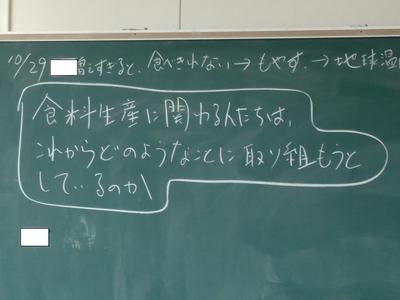 10/29 増えすぎると、食べきれない→もやす。→地球温
食料生産に関わる人たちは、
これからどのようなことに取り組もうと
しているのか